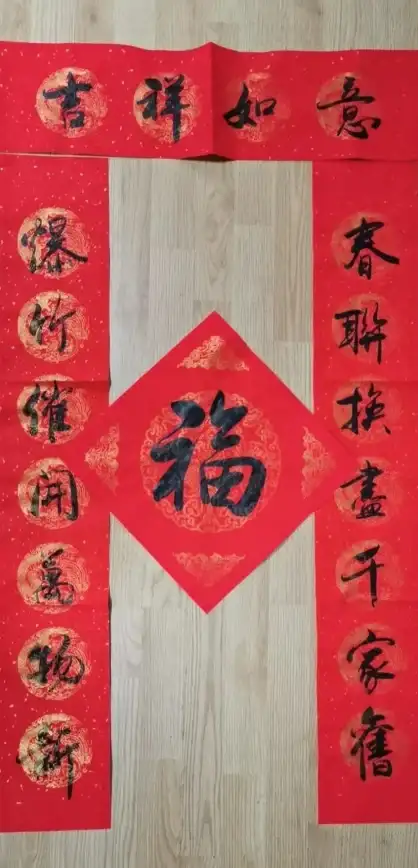 吉祥如意
春聯換盡千家舊
爆竹催開萬物新
福